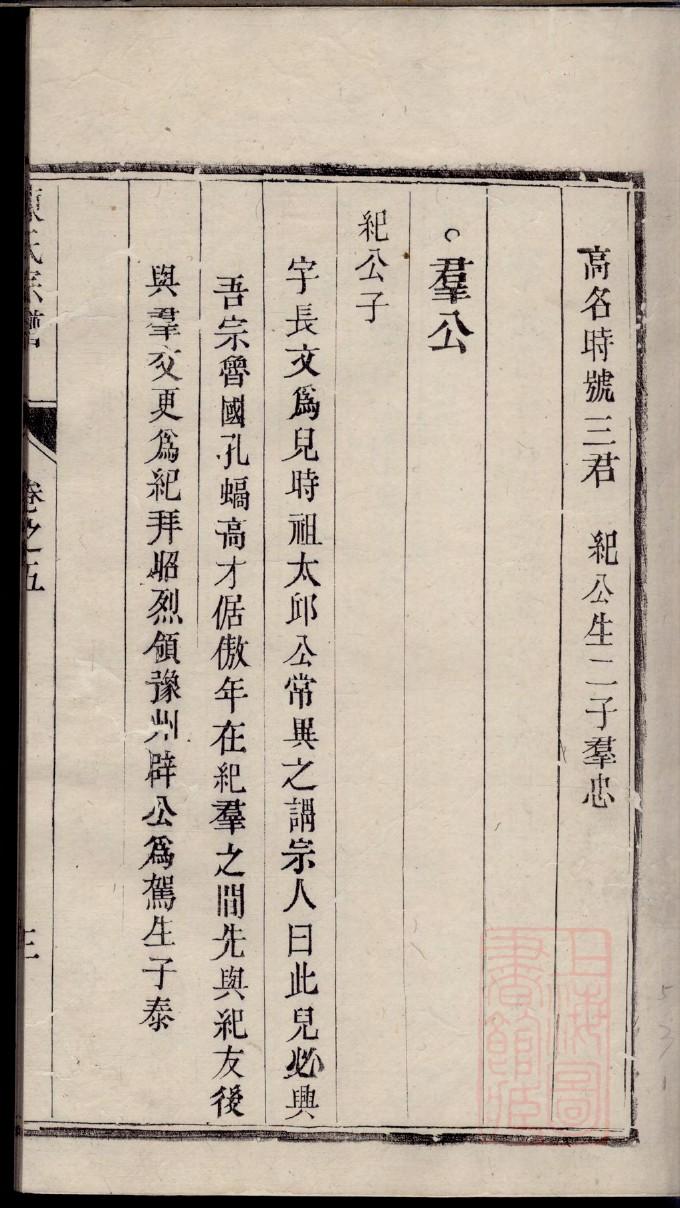 高名時號三君　紀公生二子羣忠
○羣公
紀公子
字長文爲兒時祖太邱公常異之謂宗人曰此兒必興
吾宗魯國孔螎高才倨傲年在紀羣之間先與紀友後
與羣交更爲紀拜昭烈領豫州辟公爲駕生子泰
陳氏宗譜
卷之五
三
上海圖書館藏